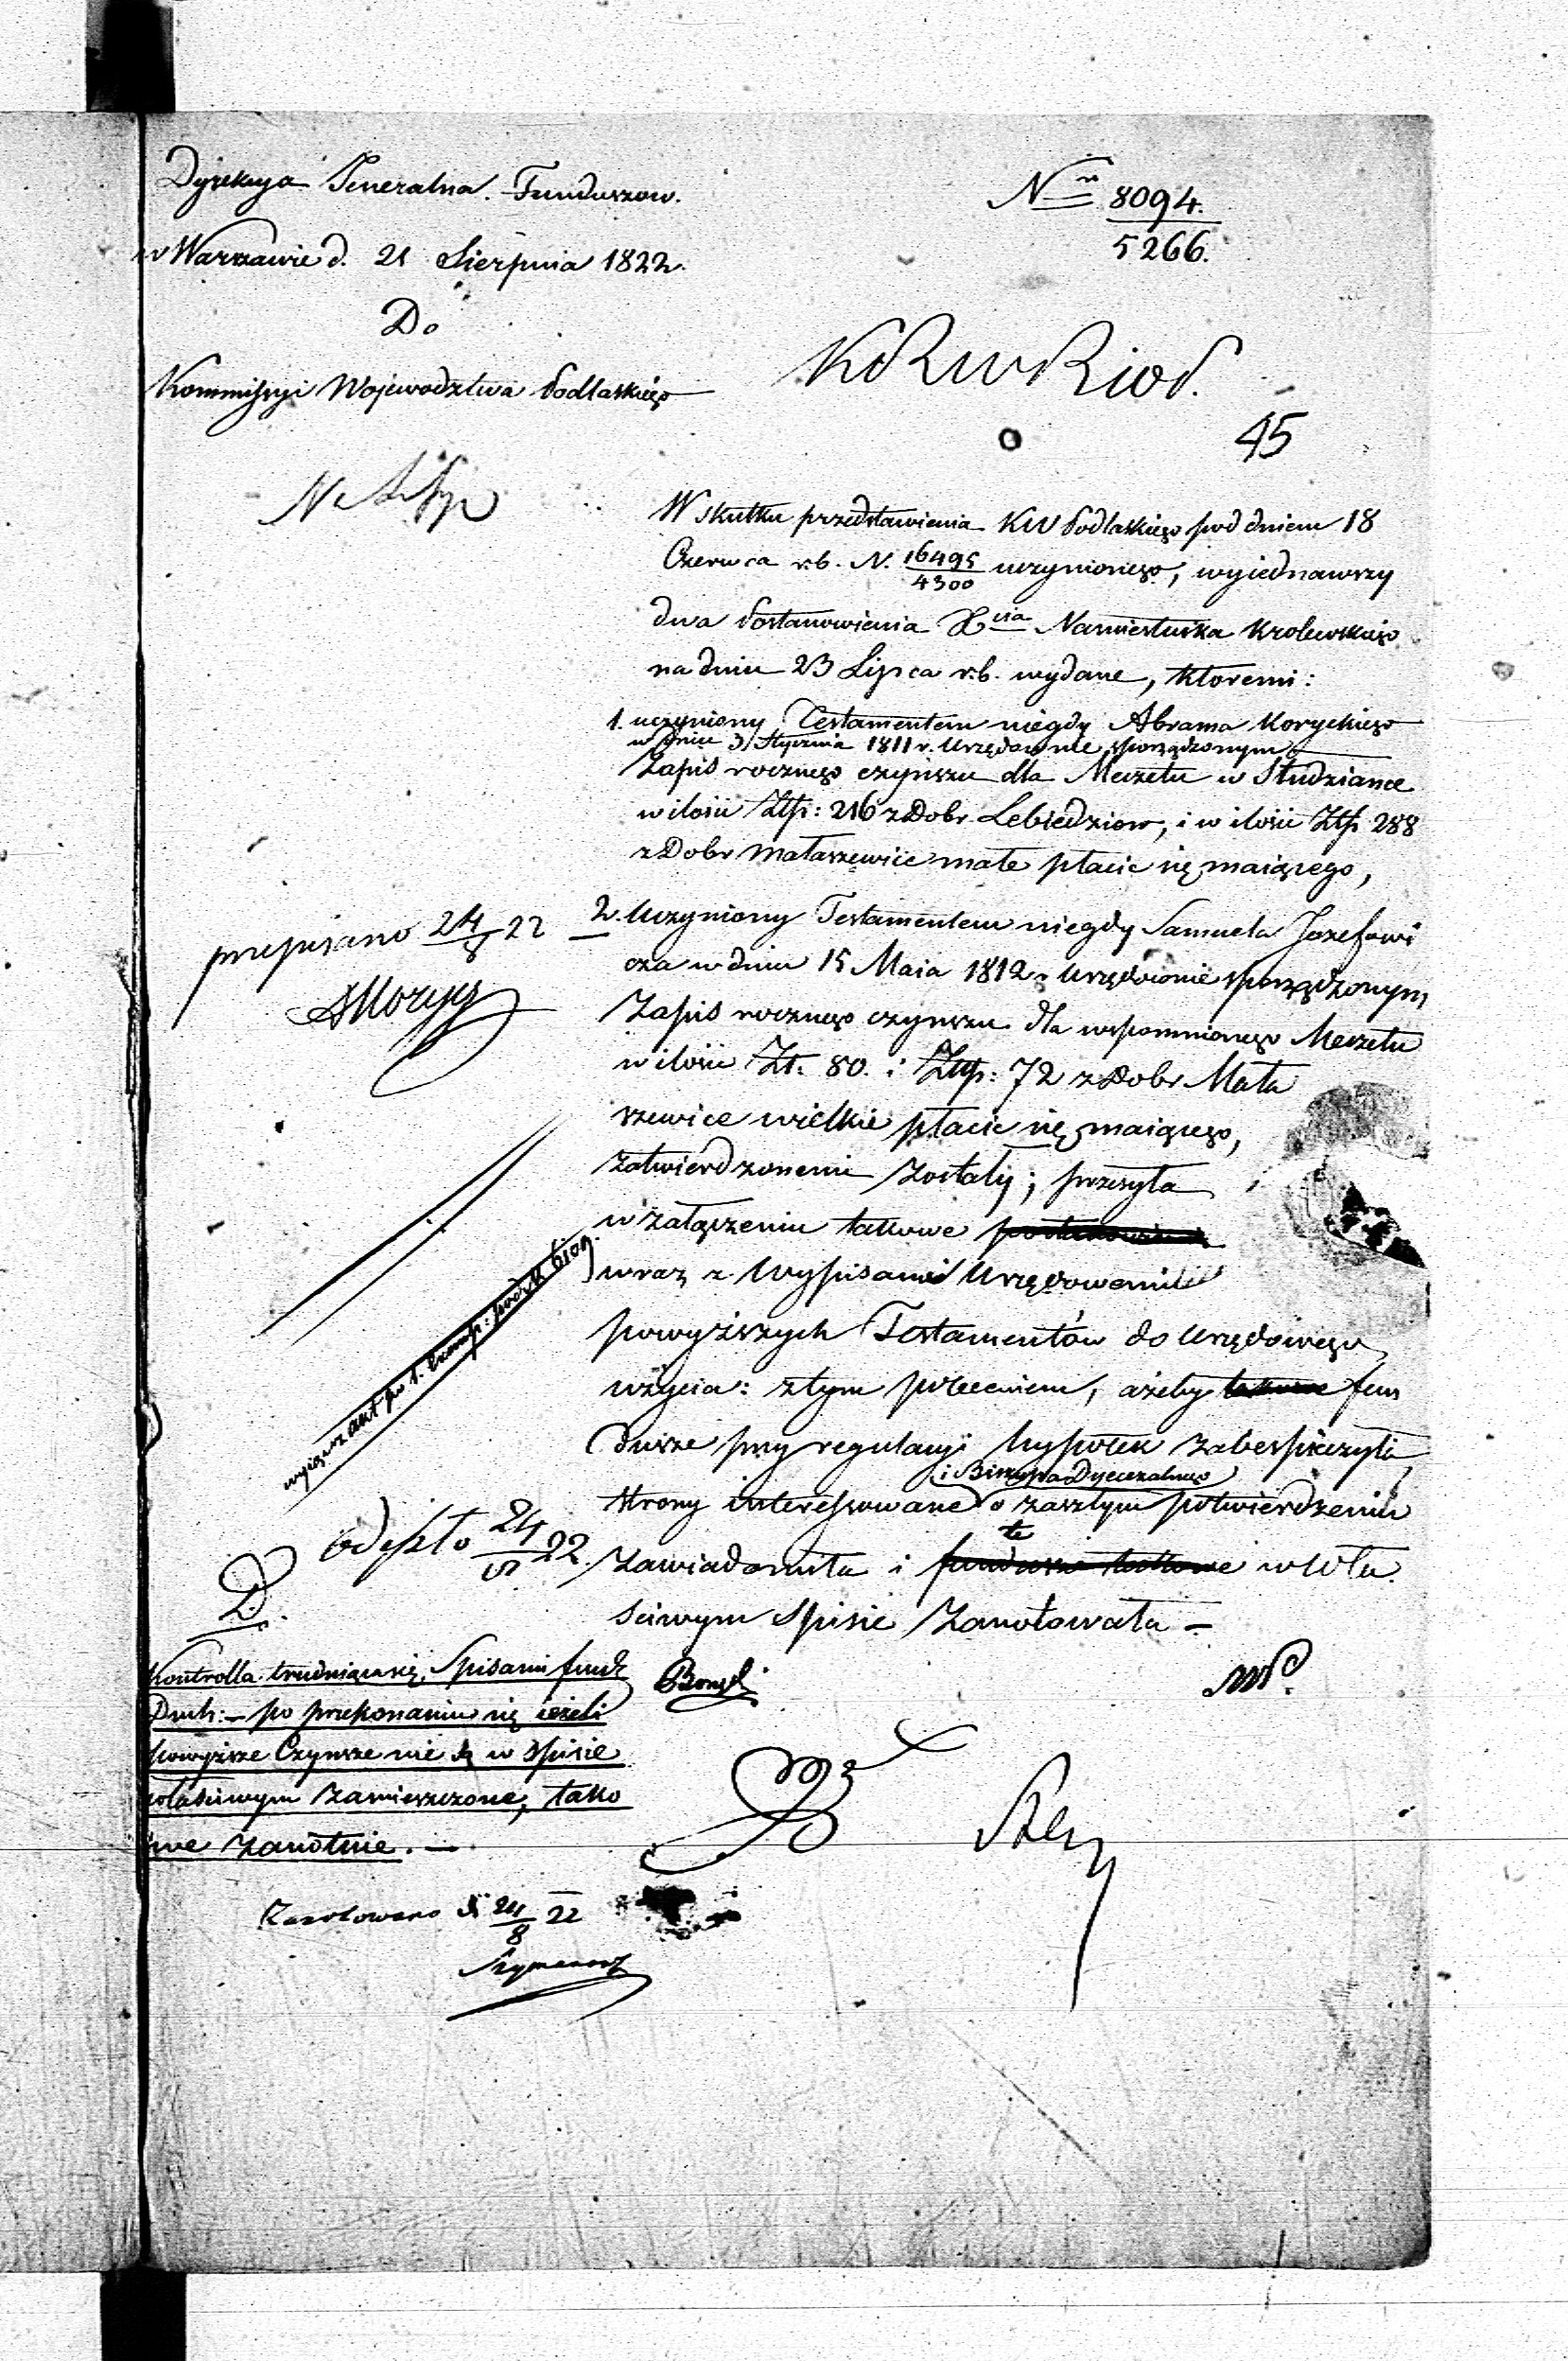 Dyrekcya Generalna Funduszow.
w Warszawie d. 21 Sierpnia 1822.
Do
Kommissyi Woiewodztwa Podlaskiego
Nrn 8094.
5266.
45
W skutku przedstawienia KW Podlaskiego pod dniem 18
Czerwca r.b. N. 16495/4300 uczynionego, wyiednawszy
dwa Postanowienia Xcia Namiestnika Krolewskiego
na dniu 23 Lipca r.b. wydane, ktoremi:
1. uczyniony Testamentem niegdy Abrama Koryckiego
w dniu 3 Stycznia 1811 r. Urzędownie sporządzonym
Zapis rocznego czynszu dla Meczetu w Studziance
w ilości Złp: 216 z Dobr Lebiedziow, i w ilości Złp 288
z Dobr Małaszewice małe płacic się maiącego,
2. Uczyniony Testamentem niegdy Samuela Jozefowi
cza w dniu 15 Maia 1812 r. Urzędownie sporządzonym
Zapis rocznego czynszu dla wspomnionego Meczetu
w ilości Zł. 80. i Złp: 72 z Dobr Mała
szewice wielkie płacic się maiącego,
zatwierdzonemi zostały; przesyła
w załączeniu takowe postanowienia
wraz z Wypisami Urzędowemi
powyższych Testamentów do urzędowego
użycia: z tym poleceniem, ażeby takowe fun
dusze przy regulacyi hypotek zabespieczyła,
i Biskupa Dyecezalnego
strony interessowane o zaszłym potwierdzeniu
te
zawiadomiła i fundusze takowe w Wła
ściwym Spisie Zanotowała –
przepisano 24/8 22
odeszło 24/8 22.
D.
Kontrolla trudniąca się Spisami fund
Duch: – po przekonaniu się ieżeli
powyższe Czynsze nie są w Spisie
właściwym zamieszczone, tako
we zanotuie. –
Zanotowano d 24/8 22